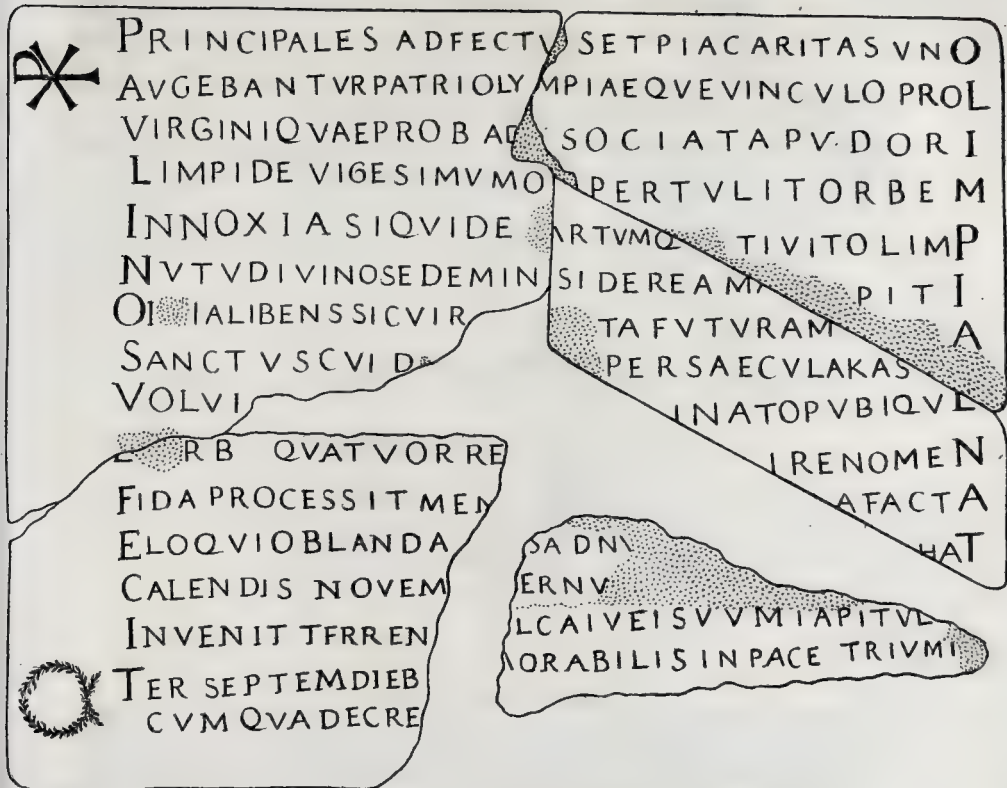 PRINCIPALES ADFECTV SETPIACARITAS VNO
AVGEBANTVRPATRIOLYMPIAEQVEVINCVLO PROL
VIRGINIQVAEPROBAD SOCIATAPV·DORI
LIMPIDE VIGESIMVMO PERTVLITORBEM
INNOXIASIQVIDE ARTVMQ TIVITOLIMP
NVTVDIVINOSEDEMIN SIDEREAMA PITI
OI IALIBENSSICVIR TAFVTVRAM A
SANCTVSCVID PERSAECVLAKAS
VOLVI INATOPVBIQVL
RB QVATVORRE IRENOMEN
FIDA PROCESSITMEN AFACTA
ELOQVIOBLANDA SADNV HAT
CALENDIS NOVEM ERNV
INVENIT TFRREN LCAIVEISVVMIAPITVL
TER SEPTEMDIEB ORABILIS INPACE TRIVMI
CVM QVADECRE